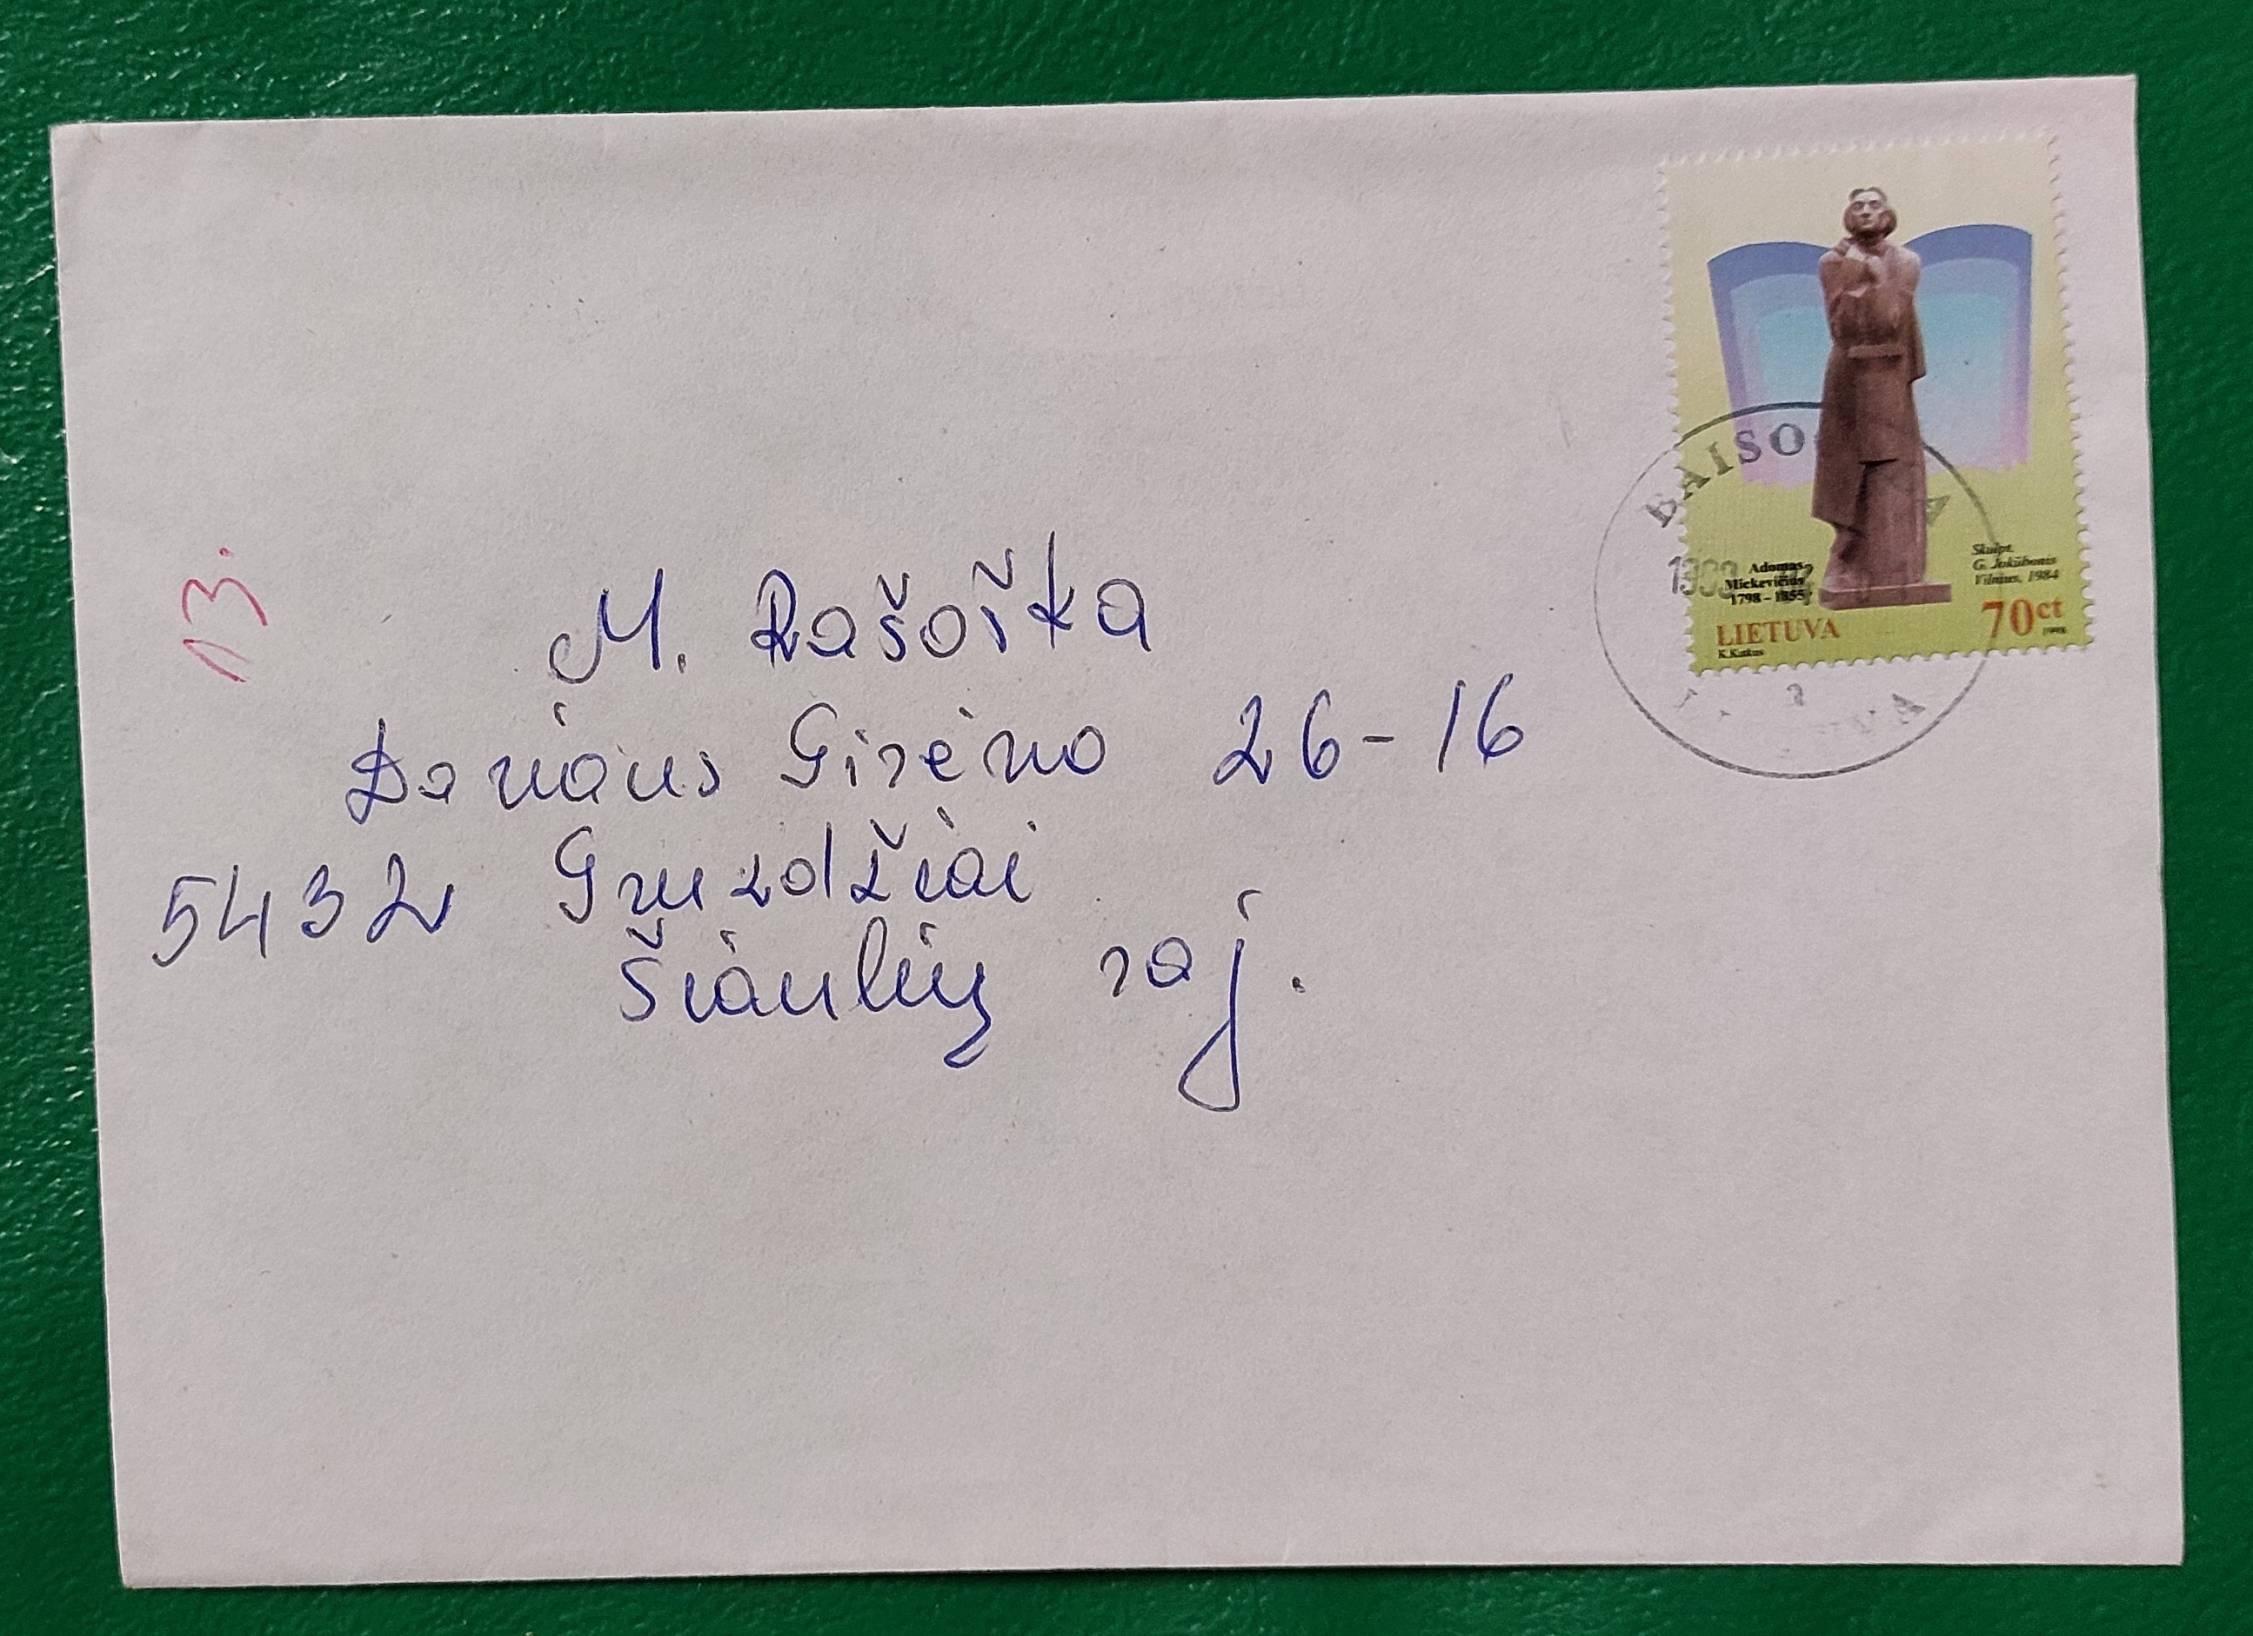 13.
M. Rašoška
Dariaus Girėno 26-16
5432 Gruzdžiai
Šiaulių raj.
Adomas
Mickevičius
1798 – 1855
Skulpt.
G. Jokūbonis
Vilnius, 1984
LIETUVA
70ct
1998
K.Katkus
BAISO A